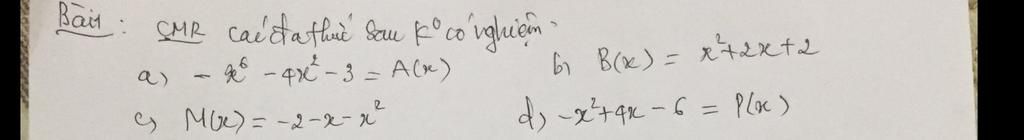 Bài : CMR các đa thức sau k° có nghiệm.
a) - x⁶ - 4x² - 3 = A(x) b) B(x) = x² + 2x + 2
c) M(x) = -2 - x - x² d) -x² + 4x - 6 = P(x)